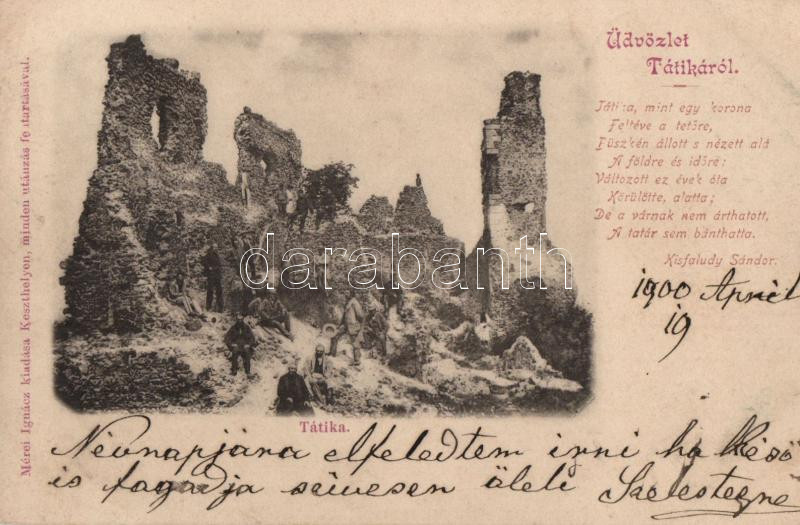 Üdvözlet
Tátikáról.
Tátika, mint egy korona
Feltéve a tetőre,
Büszkén állott s nézett alá
A földre és időre;
Változott ez évek óta
Körülötte, alatta;
De a várnak nem árthatott,
A tatár sem bánthatta.
Kisfaludy Sándor.
1900 April
19
darabanth.com
Mérei Ignácz kiadása Keszthelyen, minden utánzás fentartásával.
Tátika.
Névnapjára elfeledtem irni ha késő
is fogadja szivesen öleli